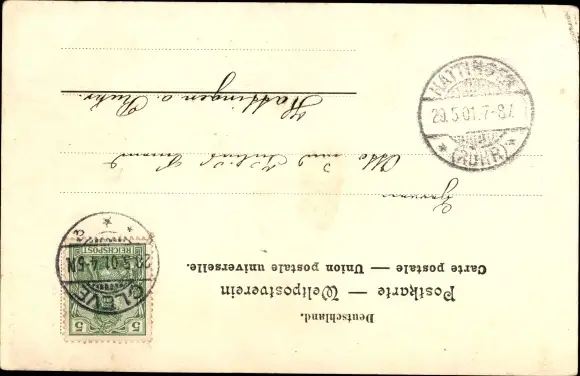 Deutschland.
Postkarte — Weltpostverein
Carte postale — Union postale universelle.
5 5
REICHSPOST
CLEVE
29.5.01.4-5N
a
Herren
Otto und
Hattingen a. Ruhr.
HATTINGEN
29.5.01.7-8N
(RUHR)